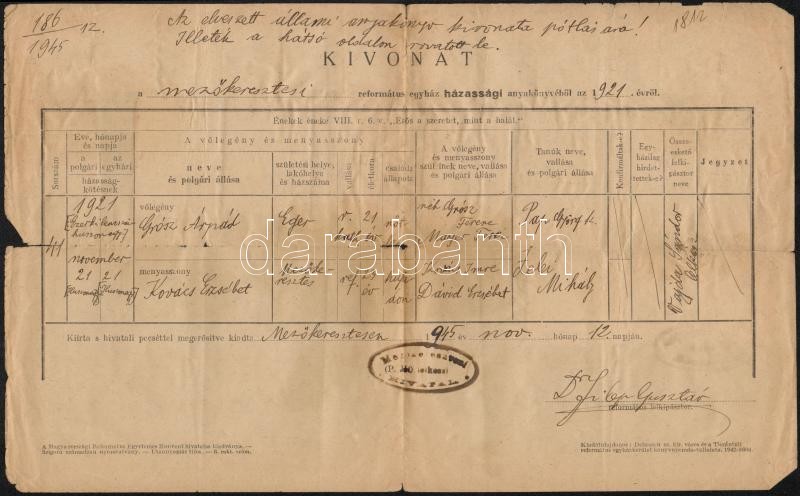 186 / 1945 12.
Az elveszett állami anyakönyv kivonata pótlására!
Illeték a hátsó oldalon rovatott le.
1812
KIVONAT
a mezőkeresztesi református egyház házassági anyakönyvéből az 1921. évről.
Énekek éneke VIII. r. 6. v. „Erős a szeretet, mint a halál."
Sorszám
Éve, hónapja és napja
a polgári
az egyházi
házasságkötésnek
A vőlegény és menyasszony
neve és polgári állása
születési helye, lakóhelye és házszáma
vallása
életkora
családi állapota
A vőlegény és menyasszony szülőinek neve, vallása és polgári állása
Tanúk neve, vallása és polgári állása
Konfirmáltak-e?
Egyházilag hirdettettek-e?
Összeeskető lelkipásztor neve
Jegyzet
1921
vőlegény
Grósz Árpád
Eger
r. kath
21 év
néh Grósz Ferenc
Pap György
november
21 21
menyasszony
Kovács Erzsébet
ref.
év
hajadon
Imre
Dávid Erzsébet
Mihály
Vajda Sándor
darabanth
Kiírta s hivatali pecséttel megerősítve kiadta Mezőkeresztesen 1945 év nov. hónap 12 napján.
HIVATAL
Dr Gusztáv
református lelkipásztor.
A Magyarországi Református Egyetemes Konvent hivatalos kiadványa. —
Szigorú számadású nyomtatvány. — Utánnyomás tilos. —
Kiadótulajdonos: Debrecen sz. kir. város és a Tiszántúli
református egyházkerület könyvnyomda-vállalata. 1942